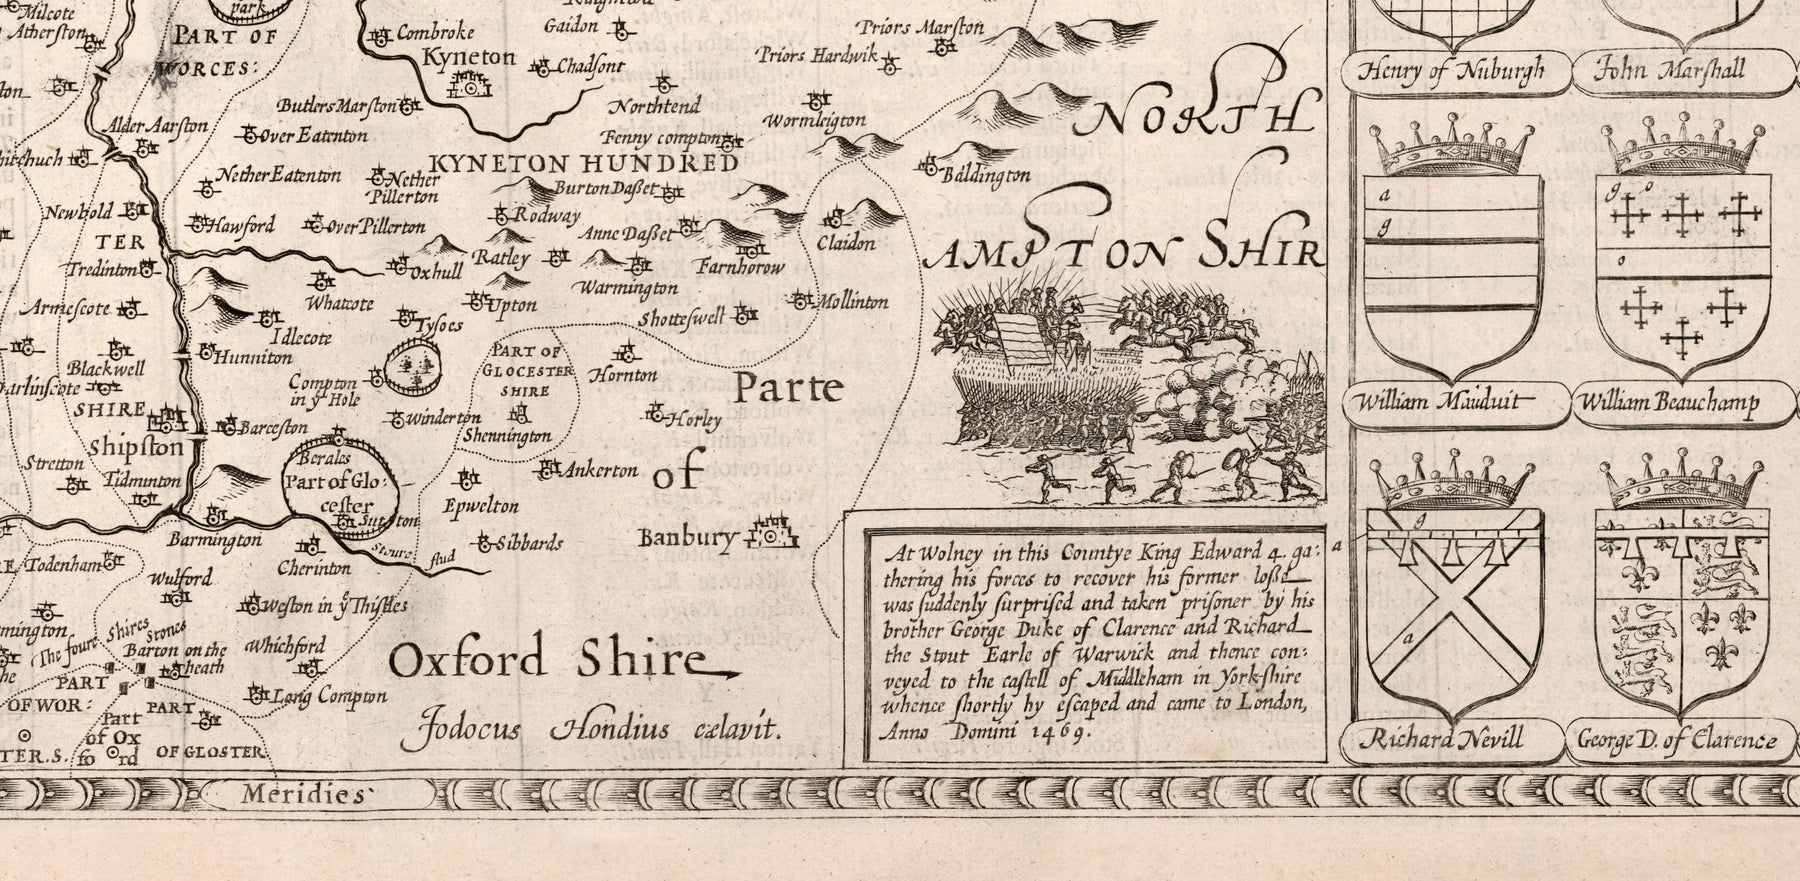 park
Milcote
Atherston
PART OF
WORCES:
Combroke
Kyneton
Gaidon
Chadsont
Priors Marston
Priors Hardwik
Northtend
Wormleigton
Butlers Marston
Alder Aarston
Over Eatenton
Fenny compton
NORTH
KYNETON HUNDRED
Nether Eatenton
Nether
Pillerton
Burton Daßet
Baldington
Newbold
Hawford
Over Pillerton
Rodway
Anne Daßet
Claidon
TER
Tredinton
Oxhull
Ratley
Farnhorow
AMPTON SHIR
Whatcote
Warmington
Upton
Mollinton
Armescote
Idlecote
Tysoes
Shotteswell
Hunniton
PART OF
GLOCESTER
SHIRE
Hornton
Blackwell
Compton
in yͤ Hole
Parte
SHIRE
Winderton
Horley
Shennington
Barceston
Shipston
Stretton
Tidminton
Berales
Part of Glo:
cester
Sutton
Ankerton
of
Epwelton
Banbury
Sibbards
Barmington
Cherinton
Stoure flud
Todenham
Wulford
Weston in yͤ Thistles
The foure Shires Stones
Barton on the
heath
Whichford
Long Compton
PART
OF WOR:
TER.S.
Part
of Ox
fo rd
PART
OF GLOSTER
Oxford Shire
Jodocus Hondius cælavit.
Meridies
At Wolney in this Countye King Edward 4. ga:
thering his forces to recover his former loße
was suddenly surprised and taken prisoner by his
brother George Duke of Clarence and Richard
the Stout Earle of Warwick and thence con:
veyed to the castell of Middleham in York-shire
whence shortly hy escaped and came to London,
Anno Domini 1469.
Henry of Nuburgh
John Marshall
a
g
g o
o
William Mauduit
William Beauchamp
a
g
a
Richard Nevill
George D. of Clarence